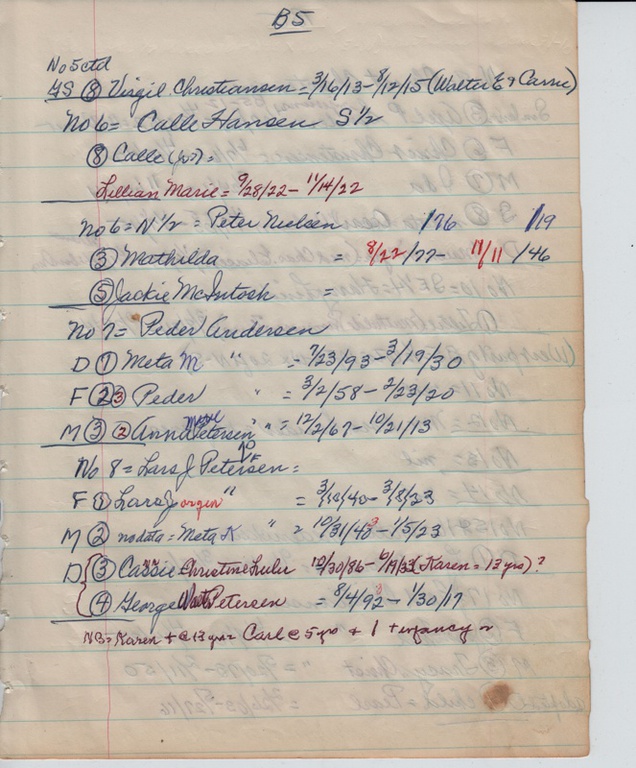 B5
No 5 ctd
GS ⑧ Virgil Christiansen = 3/16/13 – 8/12/15 (Walter E & Carrie)
No 6 = Calle Hansen S 1/2
⑧ Calle =
Lillian Marie = 9/28/22 – 11/14/22
No 6 = N 1/2 = Peter Nielsen /76 /19
③ Mathilda = 8/22/77 – 11/11/46
⑤ Jackie McIntosh =
No 7 = Peder Andersen
D ① Meta M " = 7/23/93 – 3/19/30
F ② 3 Peder " = 3/2/58 – 2/23/20
M ③ ② Anna Petersen " = 12/2/67 – 10/21/13
No 8 = Lars J Petersen =
F ① Lars Jorgen " = 3/8/23
M ② no data = Meta K " = – 1/5/23
D ③ Cassie Christine Lulu 10/30/86 – (Karen = 13 yrs) ?
④ George Petersen = 8/4/92 – 1/30/17
NB = Karen + @ 13 yrs Carl @ 5 yrs & 1 + infancy